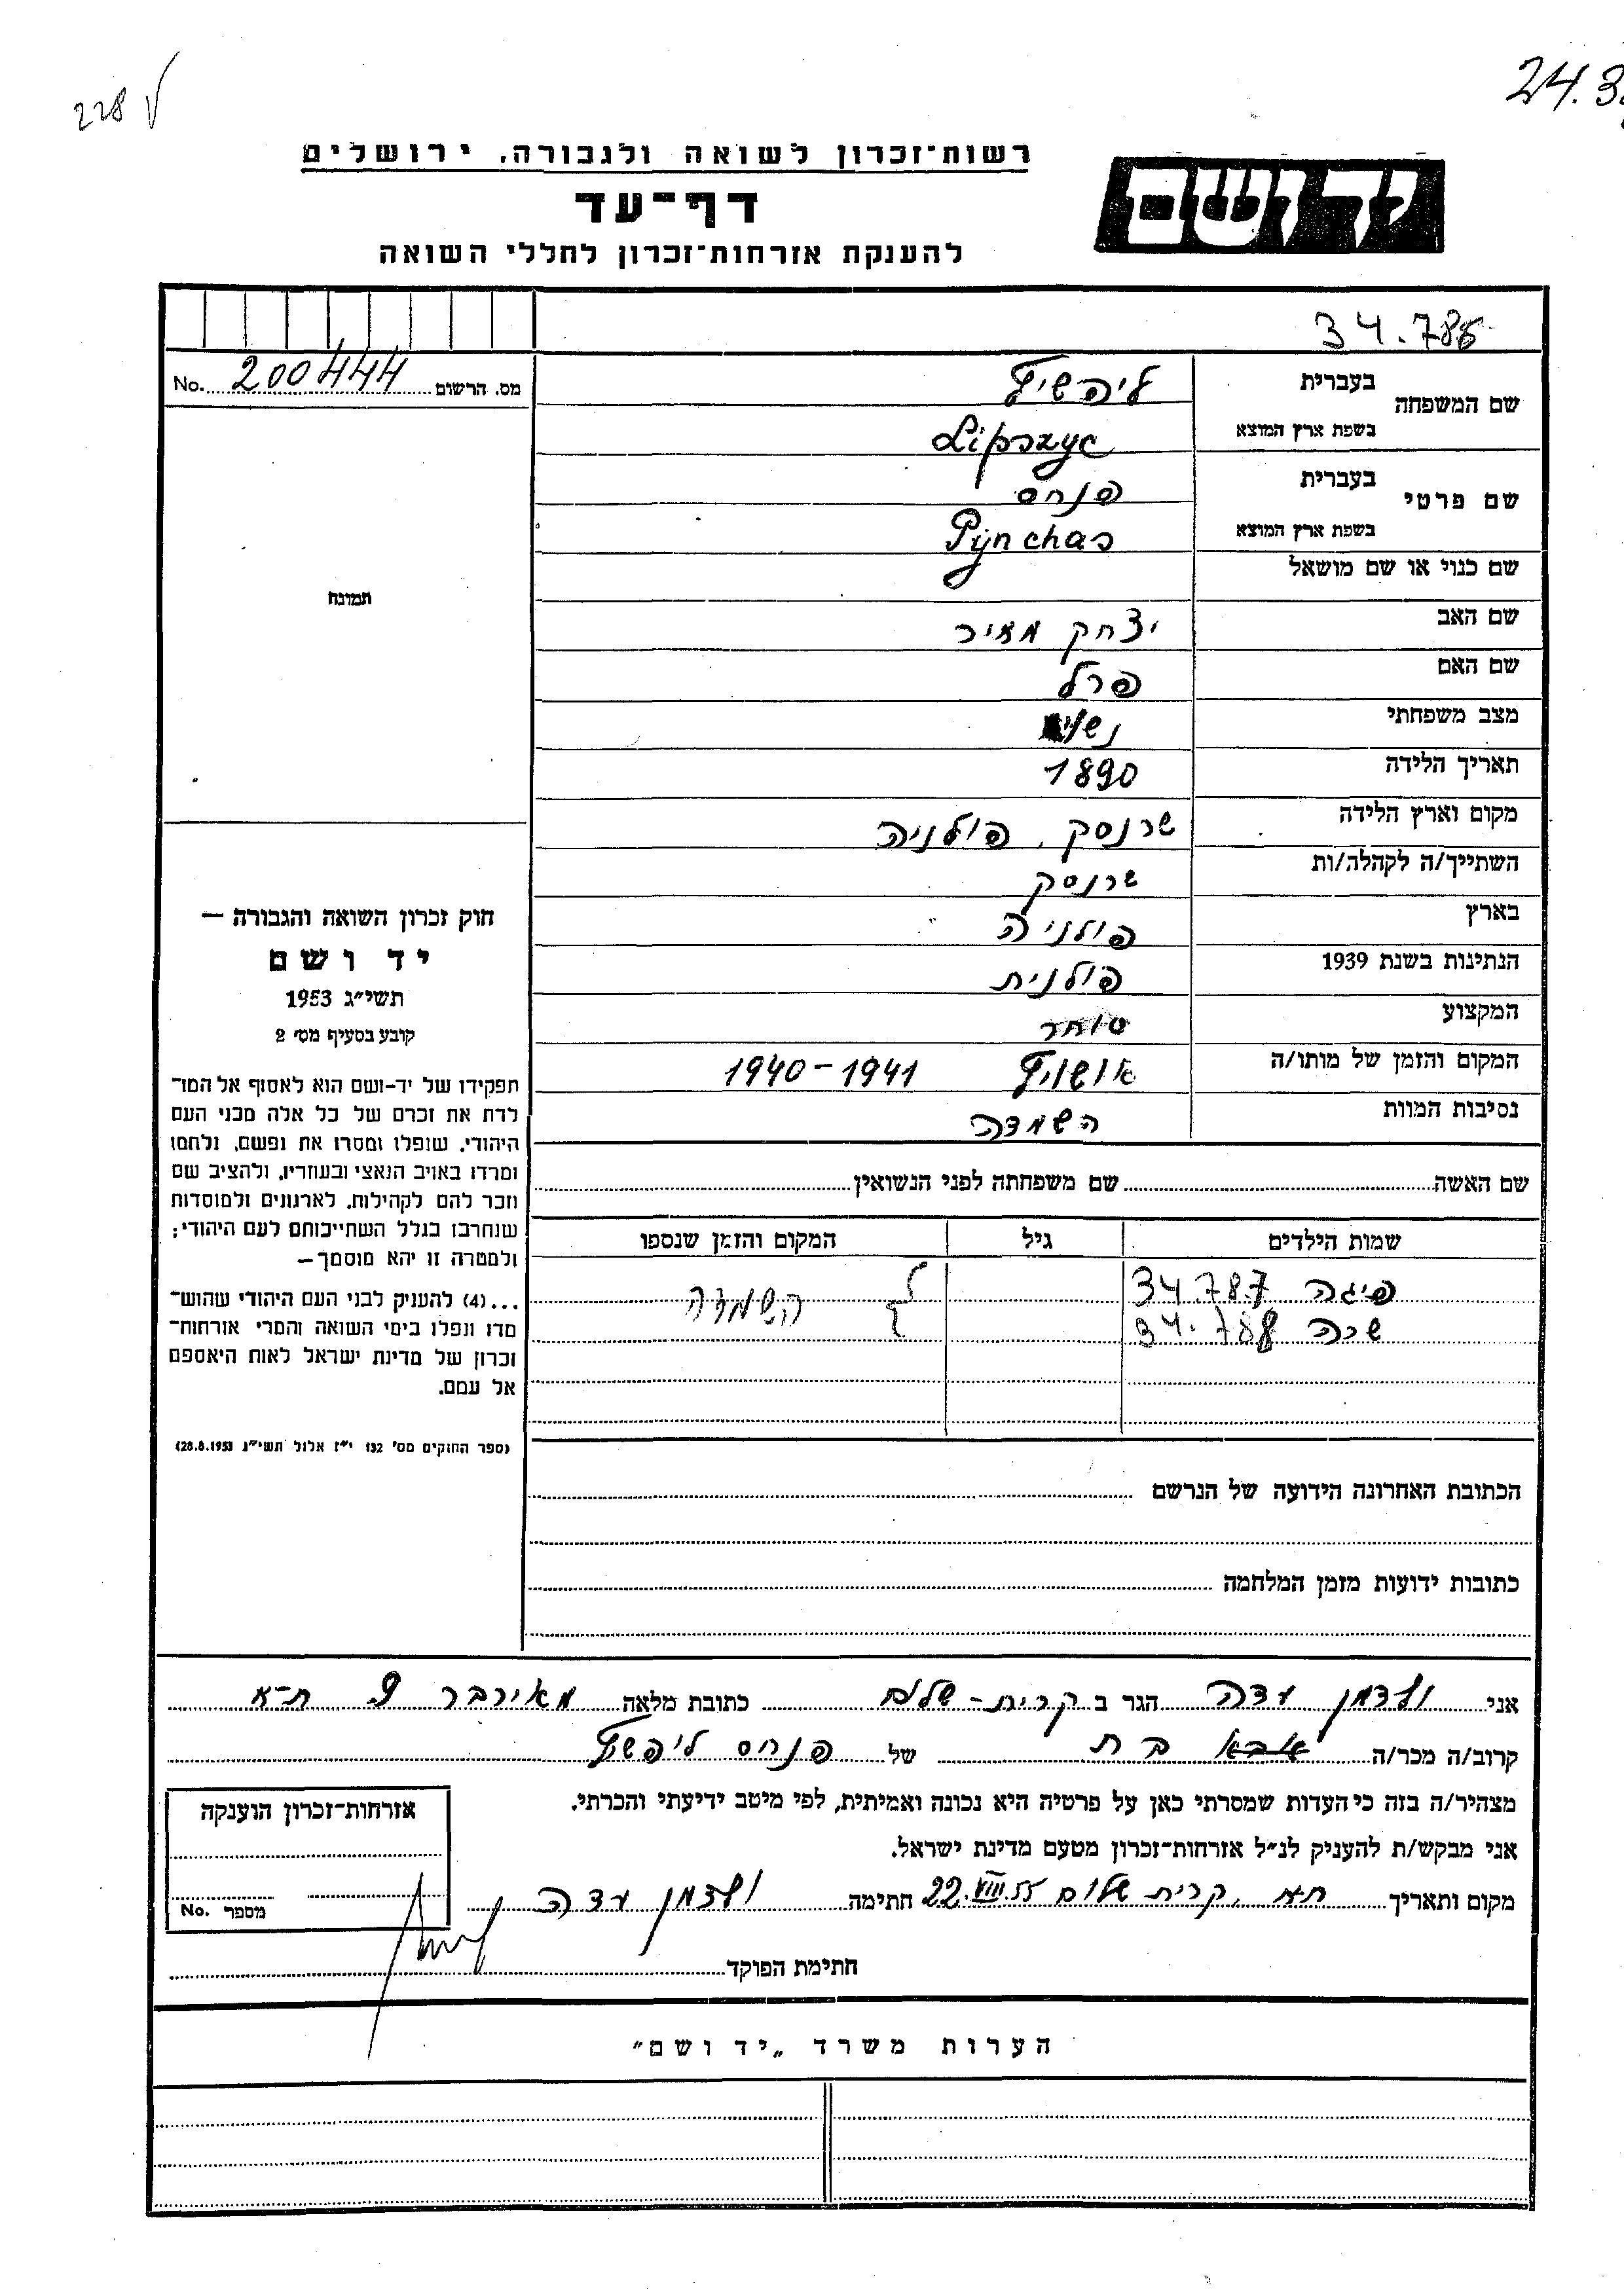 228 √
24.3
רשות־זכרון לשואה ולגבורה, ירושלים
דף־עד
להענקת אזרחות־זכרון לחללי השואה
יד ושם
34.786
No. 200444 מס. הרשום
שם המשפחה
בעברית ליפשיץ
בשפת ארץ המוצא Lipszyc
שם פרטי
בעברית פנחס
בשפת ארץ המוצא Pijnchas
שם כנוי או שם מושאל
שם האב יצחק מאיר
שם האם פרל
מצב משפחתי נשוי
תאריך הלידה 1890
מקום וארץ הלידה שרנסק, פולניה
השתייך/ה לקהלה/ות שרנסק
בארץ פולניה
הנתינות בשנת 1939 פולנית
המקצוע סוחר
המקום והזמן של מותו/ה אושויץ 1940-1941
נסיבות המוות השמדה
שם האשה שם משפחתה לפני הנשואין
שמות הילדים גיל המקום והזמן שנספו
פיגה 34.787
השמדה
שרה 34.788
הכתובת האחרונה הידועה של הנרשם
כתובות ידועות מזמן המלחמה
תמונה
חוק זכרון השואה והגבורה —
יד ושם
תשי״ג 1953
קובע בסעיף מס׳ 2
תפקידו של יד-ושם הוא לאסוף אל המו־
לדת את זכרם של כל אלה מבני העם
היהודי, שנפלו ומסרו את נפשם, נלחמו
ומרדו באויב הנאצי ובעוזריו, ולהציב שם
וזכר להם לקהילות, לארגונים ולמוסדות
שנחרבו בגלל השתייכותם לעם היהודי;
ולמטרה זו יהא מוסמך—
...(4) להעניק לבני העם היהודי שהוש־
מדו ונפלו בימי השואה והמרי אזרחות־
זכרון של מדינת ישראל לאות היאספם
אל עמם.
(ספר החוקים מס׳ 132 י״ז אלול תשי״ג 28.8.1953)
אני ולדמן עדה הגר ב קרית-שלום כתובת מלאה מאירבר 9 ת-א
קרוב/ה מכר/ה אבא בת של פנחס ליפשיץ
מצהיר/ה בזה כי העדות שמסרתי כאן על פרטיה היא נכונה ואמיתית, לפי מיטב ידיעתי והכרתי.
אני מבקש/ת להעניק לנ״ל אזרחות־זכרון מטעם מדינת ישראל.
מקום ותאריך ת״א, קרית שלום 22.VIII.55 חתימה ולדמן עדה
חתימת הפוקד
אזרחות־זכרון הוענקה
No. מספר
הערות משרד „יד ושם״